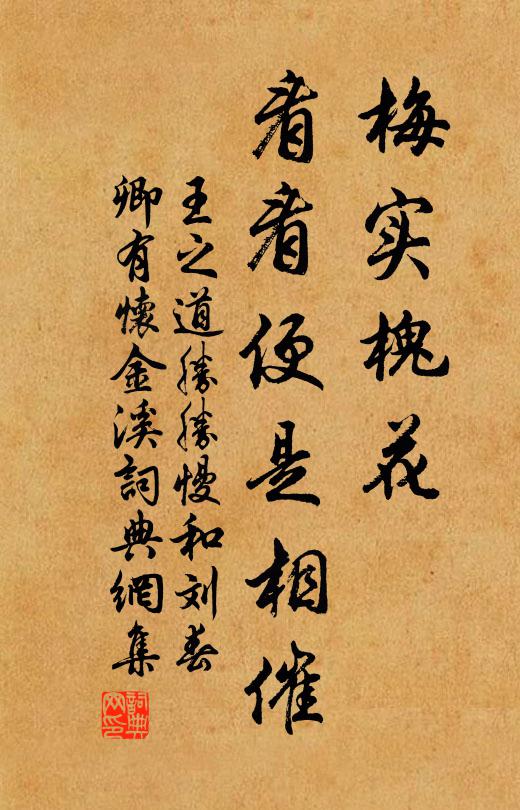 梅实槐花
看看便是相催
王之道勝勝慢和刘春
卿有懷金溪詞典網集
詞典网印